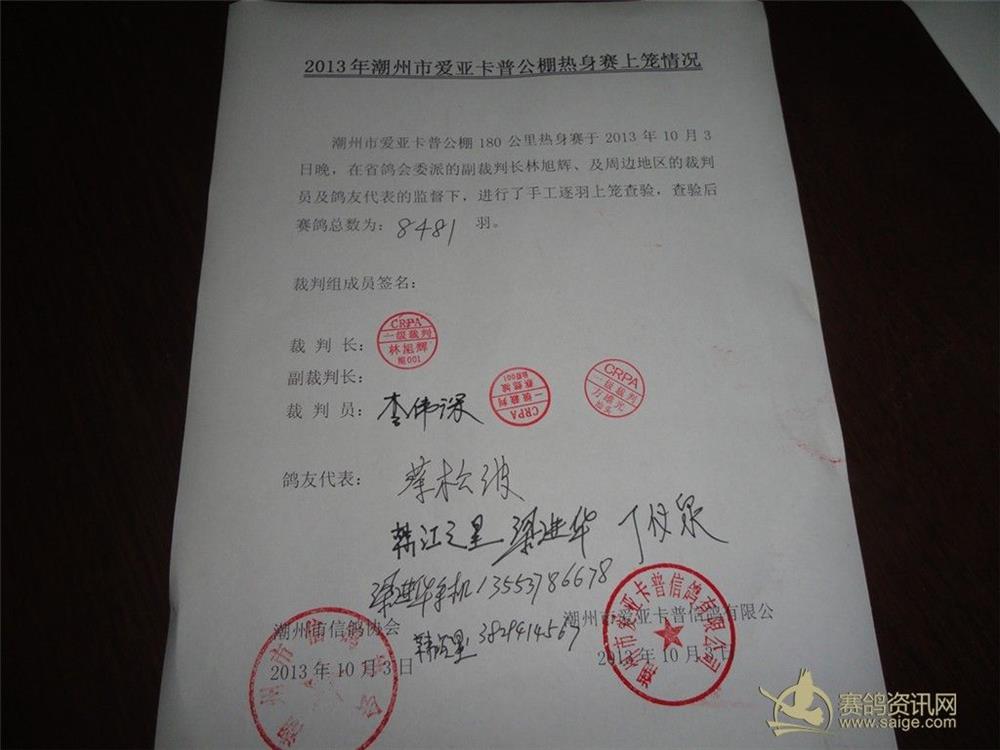 2013年潮州市爱亚卡普公棚热身赛上笼情况
潮州市爱亚卡普公棚180公里热身赛于2013年10月3
日晚，在省鸽会委派的副裁判长林旭辉、及周边地区的裁判
员及鸽友代表的监督下，进行了手工逐羽上笼查验，查验后
赛鸽总数为：8481 羽。
裁判组成员签名：
裁 判 长：
CRPA
一级裁判
林旭辉
副裁判长：
裁 判 员：李伟深
CRPA
一级裁判
CRPA
一级裁判
鸽友代表：蔡松波
韩江之星 梁进华
梁进华手机13553786678
潮州市信鸽协会
潮州市爱亚卡普信鸽有限公
2013年10月3日
2013年10月3日
潮州市爱亚卡普信鸽有限公司
赛鸽资讯网
www.saige.com